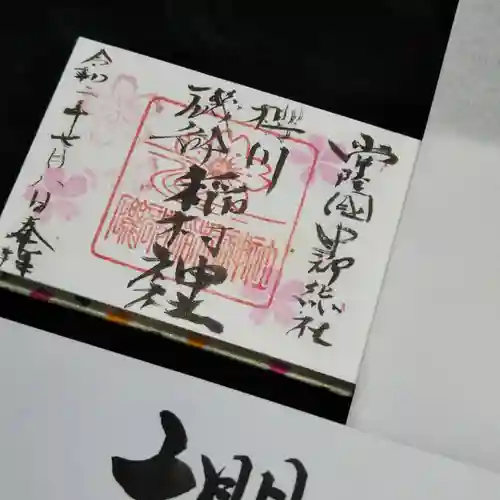 常陸國中郡総社
櫻川
磯部稲村神社
令和二年七月八日奉拝